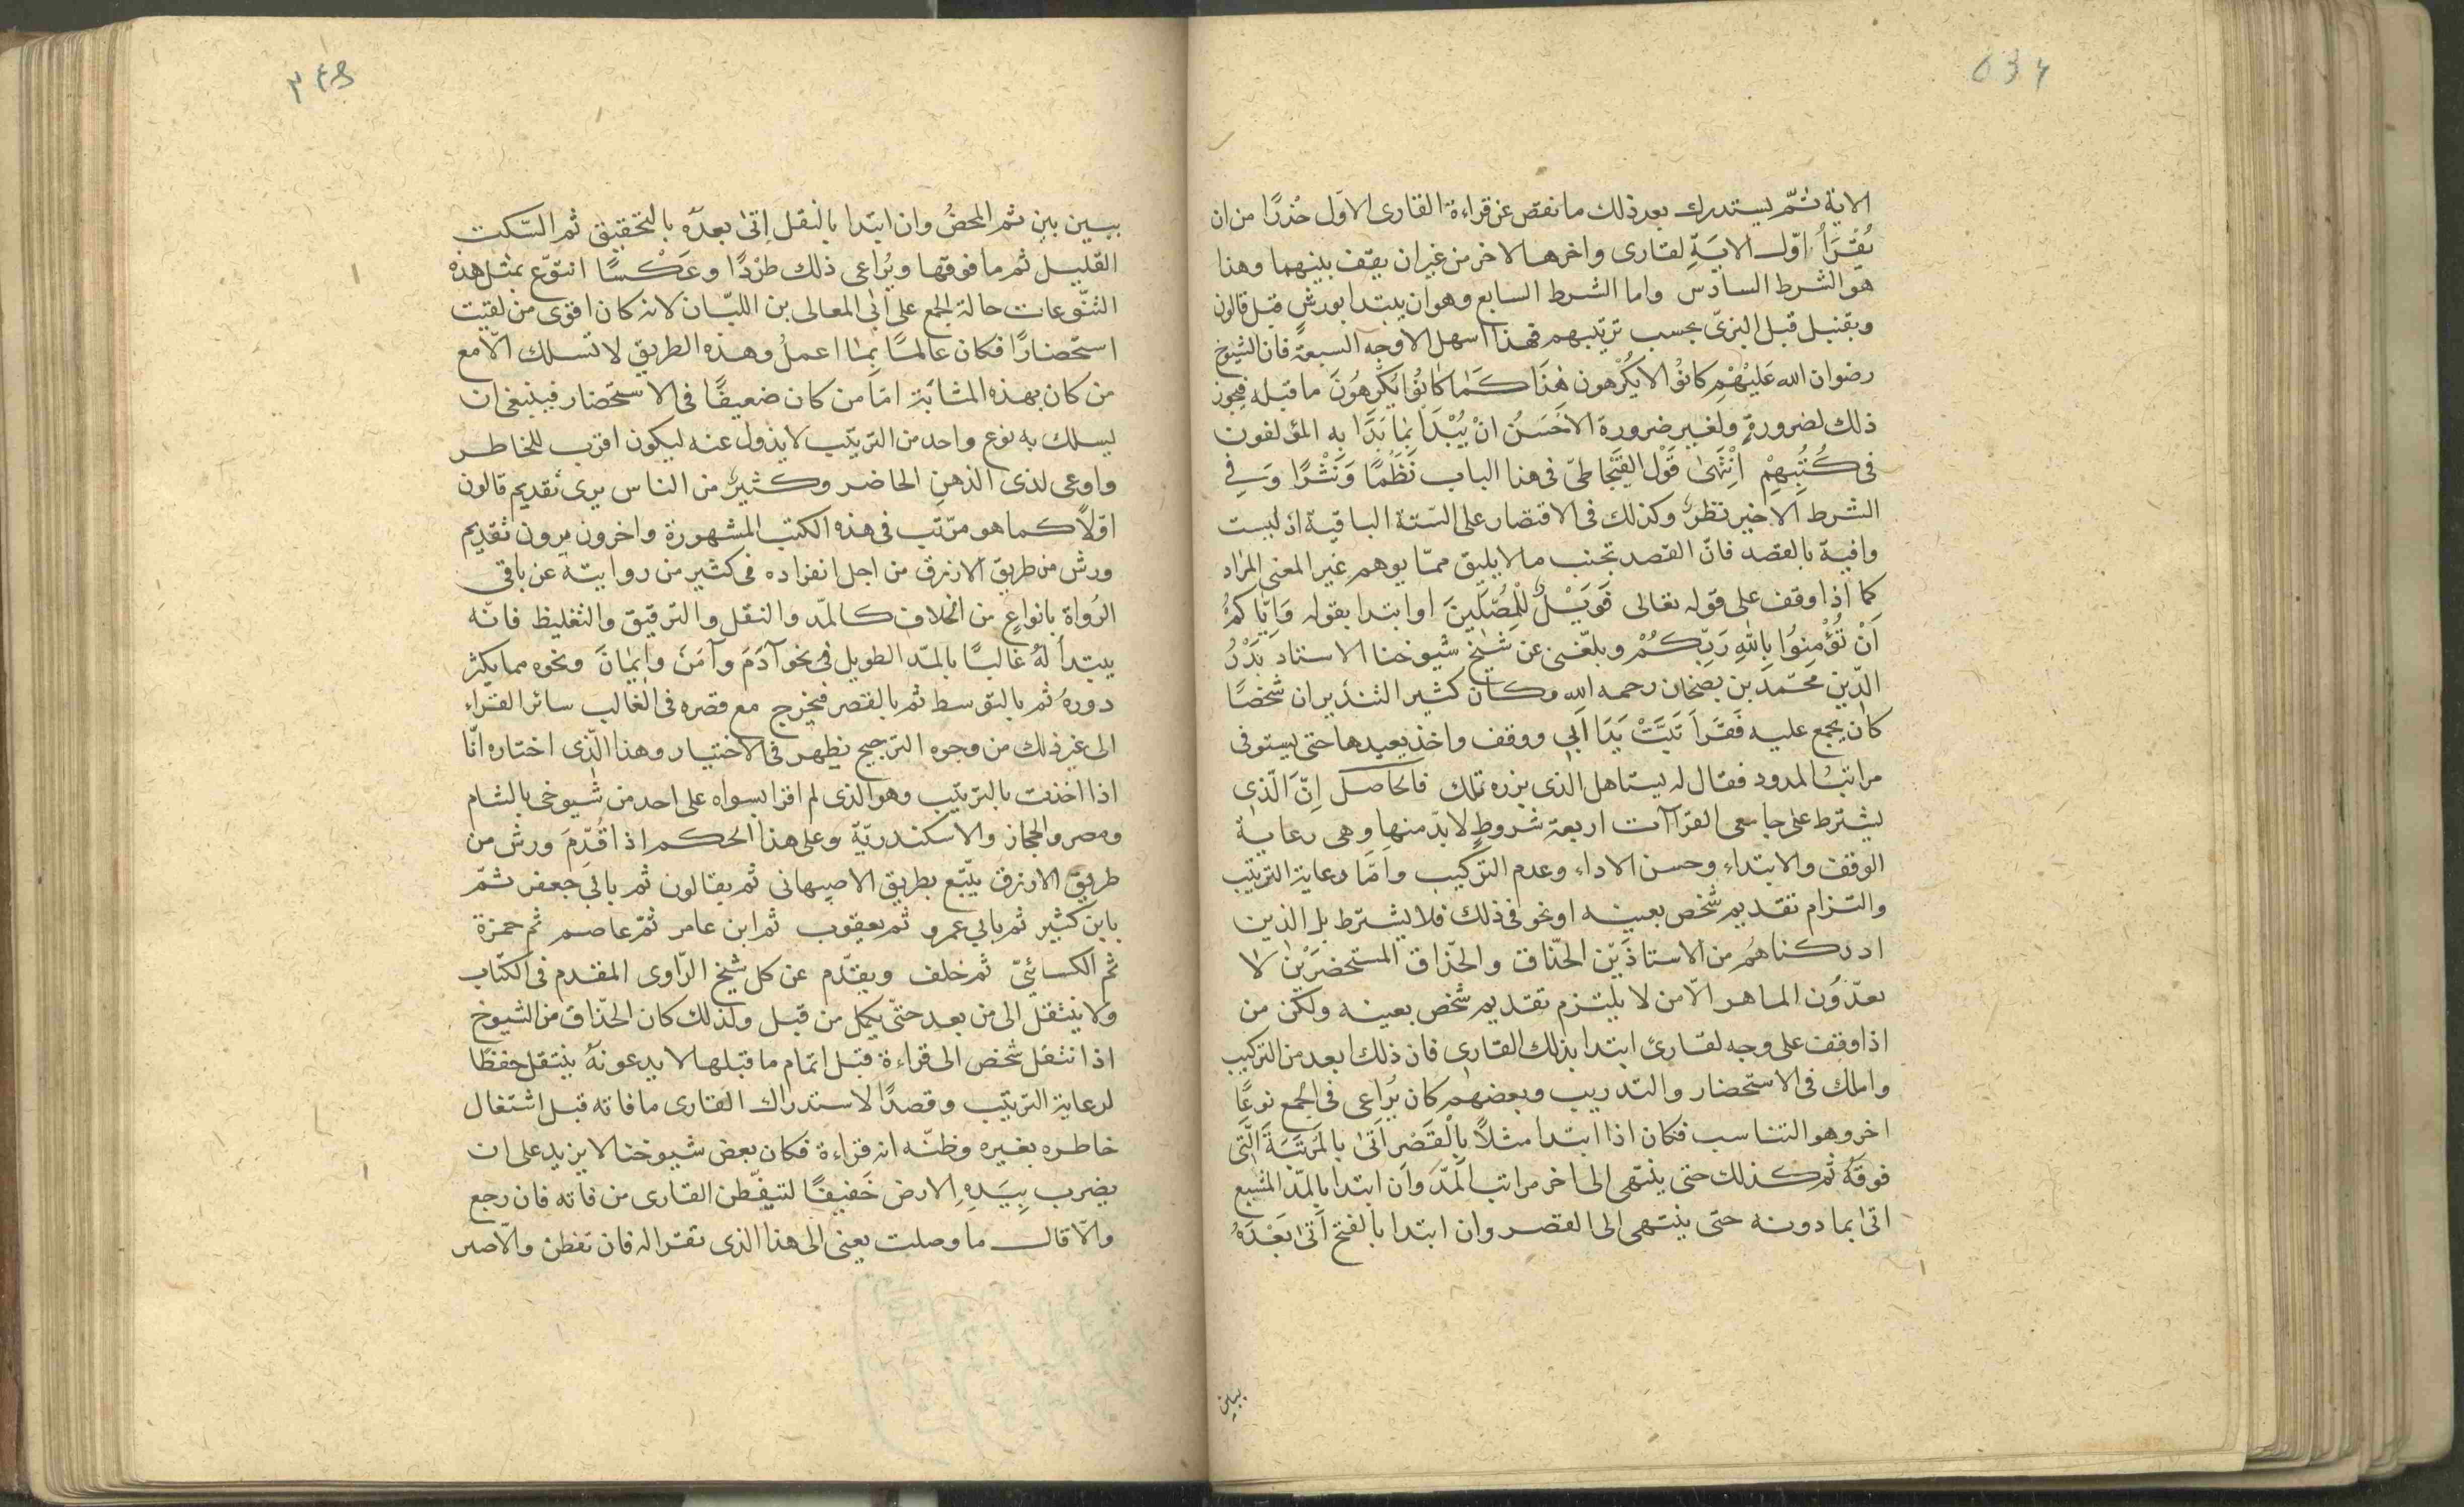 الاية ثمّ يستدرك بعد ذلك ما نقص عن قراءة القارى الاوّل حذرًا من ان
يُقْرَأُ اوّل الايَةِ لقارى واخرها لاخر من غيران يقف بينهما وهذا
هو الشرط السادس واما الشرط السابع وهو ان يبتدا بورشٍ قبل قالون
وبقنبل قبل البزىّ بحسب ترتيبهم فهذا اسهل الاوجه السبعة فان الشيوخ
رضوان الله عَليْهِمْ كانوُا لا يكْرهون هٰذَا كَمَا كَانُوا يَكْرَهُونَ ما قبله فيجوز
ذلك لضرورةٍ ولغير ضرورة الاَحْسَنُ انْ يُبْدَأ بِمَا بَدَا بِهِ المؤلفون
فى كُتُبِهِمْ اِنْتَهىٰ قَوْل القَيْجَاطىّ فى هذا الباب نَظْمًا وَنَثْرًا وَفِي
الشرط الاخير نظرٌ وكذلك فى الاقتصار على الستة الباقية اذ ليست
وافية بالقصد فانّ القصد تجنب ما لا يليق ممّا يوهم غير المعنى المراد
كما اذا وقف على قوله تعالى فَوَيْلٌ لِلْمُصَلّينَ او ابتدا بقوله وَاِيّاكمُ
اَنْ تُؤْمِنُوا بِاللهِ رَبِّكُمْ وبلغنى عن شيخ شيوخنا الاستاد بَدْرُ
الدّين محمّد بن بصخان رحمه الله وكان كثير التندير ان شخصًا
كان يجمع عليه فَقَرَاَ تَبَّتْ يَدَا اَبِي ووقف واخذ يعيدها حتى يستوفى
مراتبُ المدود فقال له يستاهل الذى بزره تلك فالحاصل اِنّ الّذى
يشترط على جامعى القراآت اربعة شروطٍ لا بدّ منها وهى رعاية
الوقف والابتداء وحسن الاداء وعدم التركيب وامّا رعاية الترتيب
والتزام تقديم شخص بعينه او نحو فى ذلك فلا يشترط بل الذين
ادركناهُم من الاستاذَيْن الحذاق والحذاق المستحضرَيْن لا
يعدّوُن الماهر الّا من لا يلتزم تقديم شخص بعينه ولكن من
اذا وقف على وجه لقارئ ابتدا بذلك القارى فان ذلك ابعد من التركيب
واملك فى الاستحضار والتدريب وبعضهم كان يُراعى فى الجمع نوعًا
اخر وهو التناسب فكان اذا ابتدا مثلاً بِالْقَصْرِ اَتىٰ بِالمَرتَبَةَ الّتى
فوقَهُ ثم كذلك حتى ينتهى الى اخر مراتب المَدّ وان ابتدا بالمدّ المشبع
اتىٰ بما دونه حتى ينتهى الى القصر وان ابتدا بالفتح اَتىٰ بَعْدَهُ
ببين
ببين بين ثم المحضُ وان ابتدا بالنقل اِتىٰ بعدَه بالتحقيق ثم السّكت
القليل ثم ما فوقها ويُراعى ذلك طرْدًا وعَكْسًا انتوّع بمثل هذه
التنّوعات حالة الجمع على اَبى المعالى بن اللبّان لانه كان اقوىٰ من لقيت
استحضارًا فكان عالمًا بِما اعملُ وهذه الطريق لا تسلك الّا مع
من كان بهذه المثابَة امّا من كان ضعيفًا فى الاستحضار فينبغى ان
يسلك به نوع واحد من الترتيب لا يذول عنه ليكون اقرب للخاطر
واوعى لذى الذهنِ الحاضر وكثيرٌ من الناس يرى تقديم قالون
اوّلاً كما هو مرّتب فى هذه الكتب المشهورة واخرون يرون تقديم
ورش من طريق الازرق من اجل انفراده فى كثير من روايته عن باقى
الرُواة بانواعٍ من الخلاف كالمدّ والنقل والترقيق والتغليظ فانّه
يبتدأ لهُ غالبًا بالمدّ الطويل فى نحو آدَمَ وآمَنَ وايْمانَ ونحوه مما يكثر
دورهُ ثم بالتوسط ثم بالقصر فيخرج مع قصره فى الغالب سائر القرّاء
الى غير ذلك من وجوه الترجيح يظهر فى الاختيار وهذا الّذى اختاره انّا
اذا اخذت بالترتيب وهو الذى لم اقرا بسواه على احد من شيوخى بالشام
ومصر والحجاز والاسكندريّة وعلى هذا الحكم اذا قُدِّمَ ورش من
طريق الازرق يتّبع بطريق الاصبهانى ثم بقالون ثم بابي جعفر ثمّ
بابن كثير ثم بابي عمرو ثم يعقوب ثم ابن عامر ثمّ عاصم ثم حمزة
ثم الكسائىّ ثم خلف ويقدّم عن كل شيخ الرّاوى المقدم فى الكتاب
ولا ينتقل الى من بعد حتّى يكمل من قبل ولذلك كان الحذاق من الشيوخ
اذا انتقل شخص الى قراءة قبل اتمام ما قبلها لا يدعونهُ ينتقل حفظًا
لرعاية الترتيب وقصدًا لاستدراك القارى ما فاته قبل اشتغال
خاطره بغيره وظنّه انه قراءة فكان بعض شيوخنا لا يزيد على ان
يضرب بِيَدِهِ الارض خَفيفًا لتيفّطن القارى من فاته فان رجع
والّا قال ما وصلت يعنى الى هذا الذى تقرا له فان تفطن والّا صبر